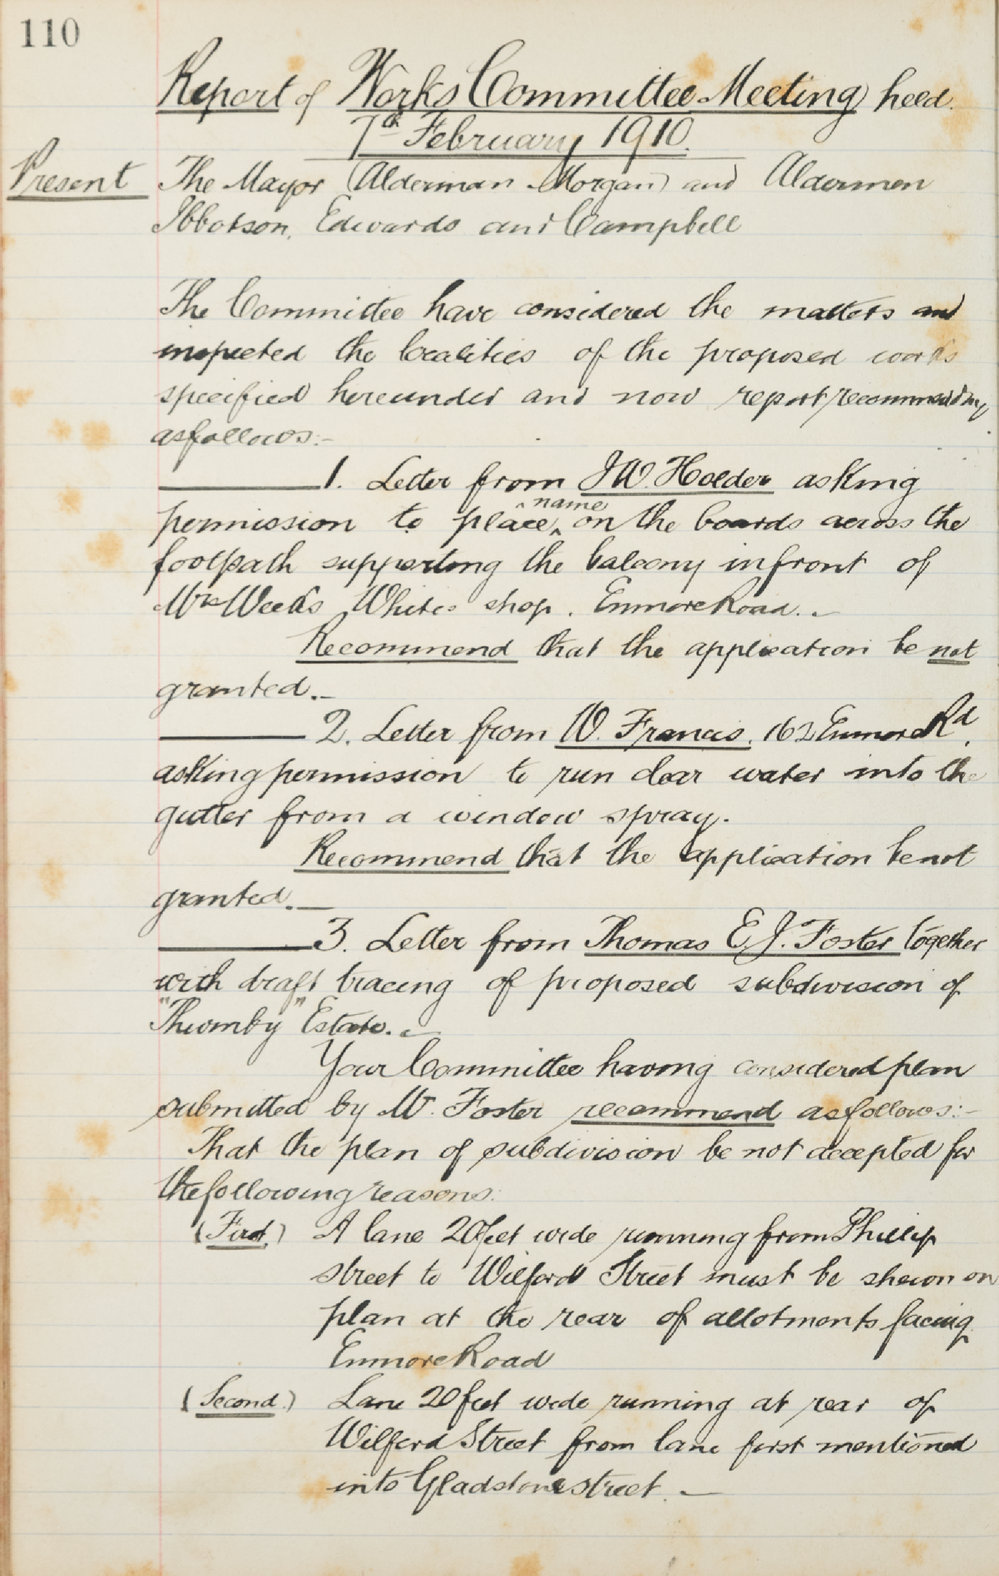 110
Report of Works Committee Meeting held
7th February 1910.
Present The Mayor (Alderman Morgan) and Aldermen
Ibbotson, Edwards and Campbell
The Committee have considered the matters and
inspected the localities of the proposed works
specified hereunder and now report/recommending
as follows:-
1. Letter from J W. Holder asking
name
permission to place on the boards across the
footpath supporting the balcony in front of
Mrs Weeks White's shop. Enmore Road.-
Recommend that the application be not
granted.-
2. Letter from W. Francis. 162 Enmore Rd.
asking permission to run clear water into the
gutter from a window spray.
Recommend that the application be not
granted.-
3. Letter from Thomas E. J. Foster together
with draft tracing of proposed subdivision of
"Thurnby" Estate.-
Your Committee having considered plan
submitted by Mr. Foster recommend as follows:-
That the plan of subdivision be not accepted for
the following reasons:
(First.) A lane 20 feet wide running from Phillip
street to Wilford Street must be shewn on
plan at the rear of allotments facing
Enmore Road
(Second.) Lane 20 feet wide running at rear of
Wilford Street from lane first mentioned
into Gladstone street.-